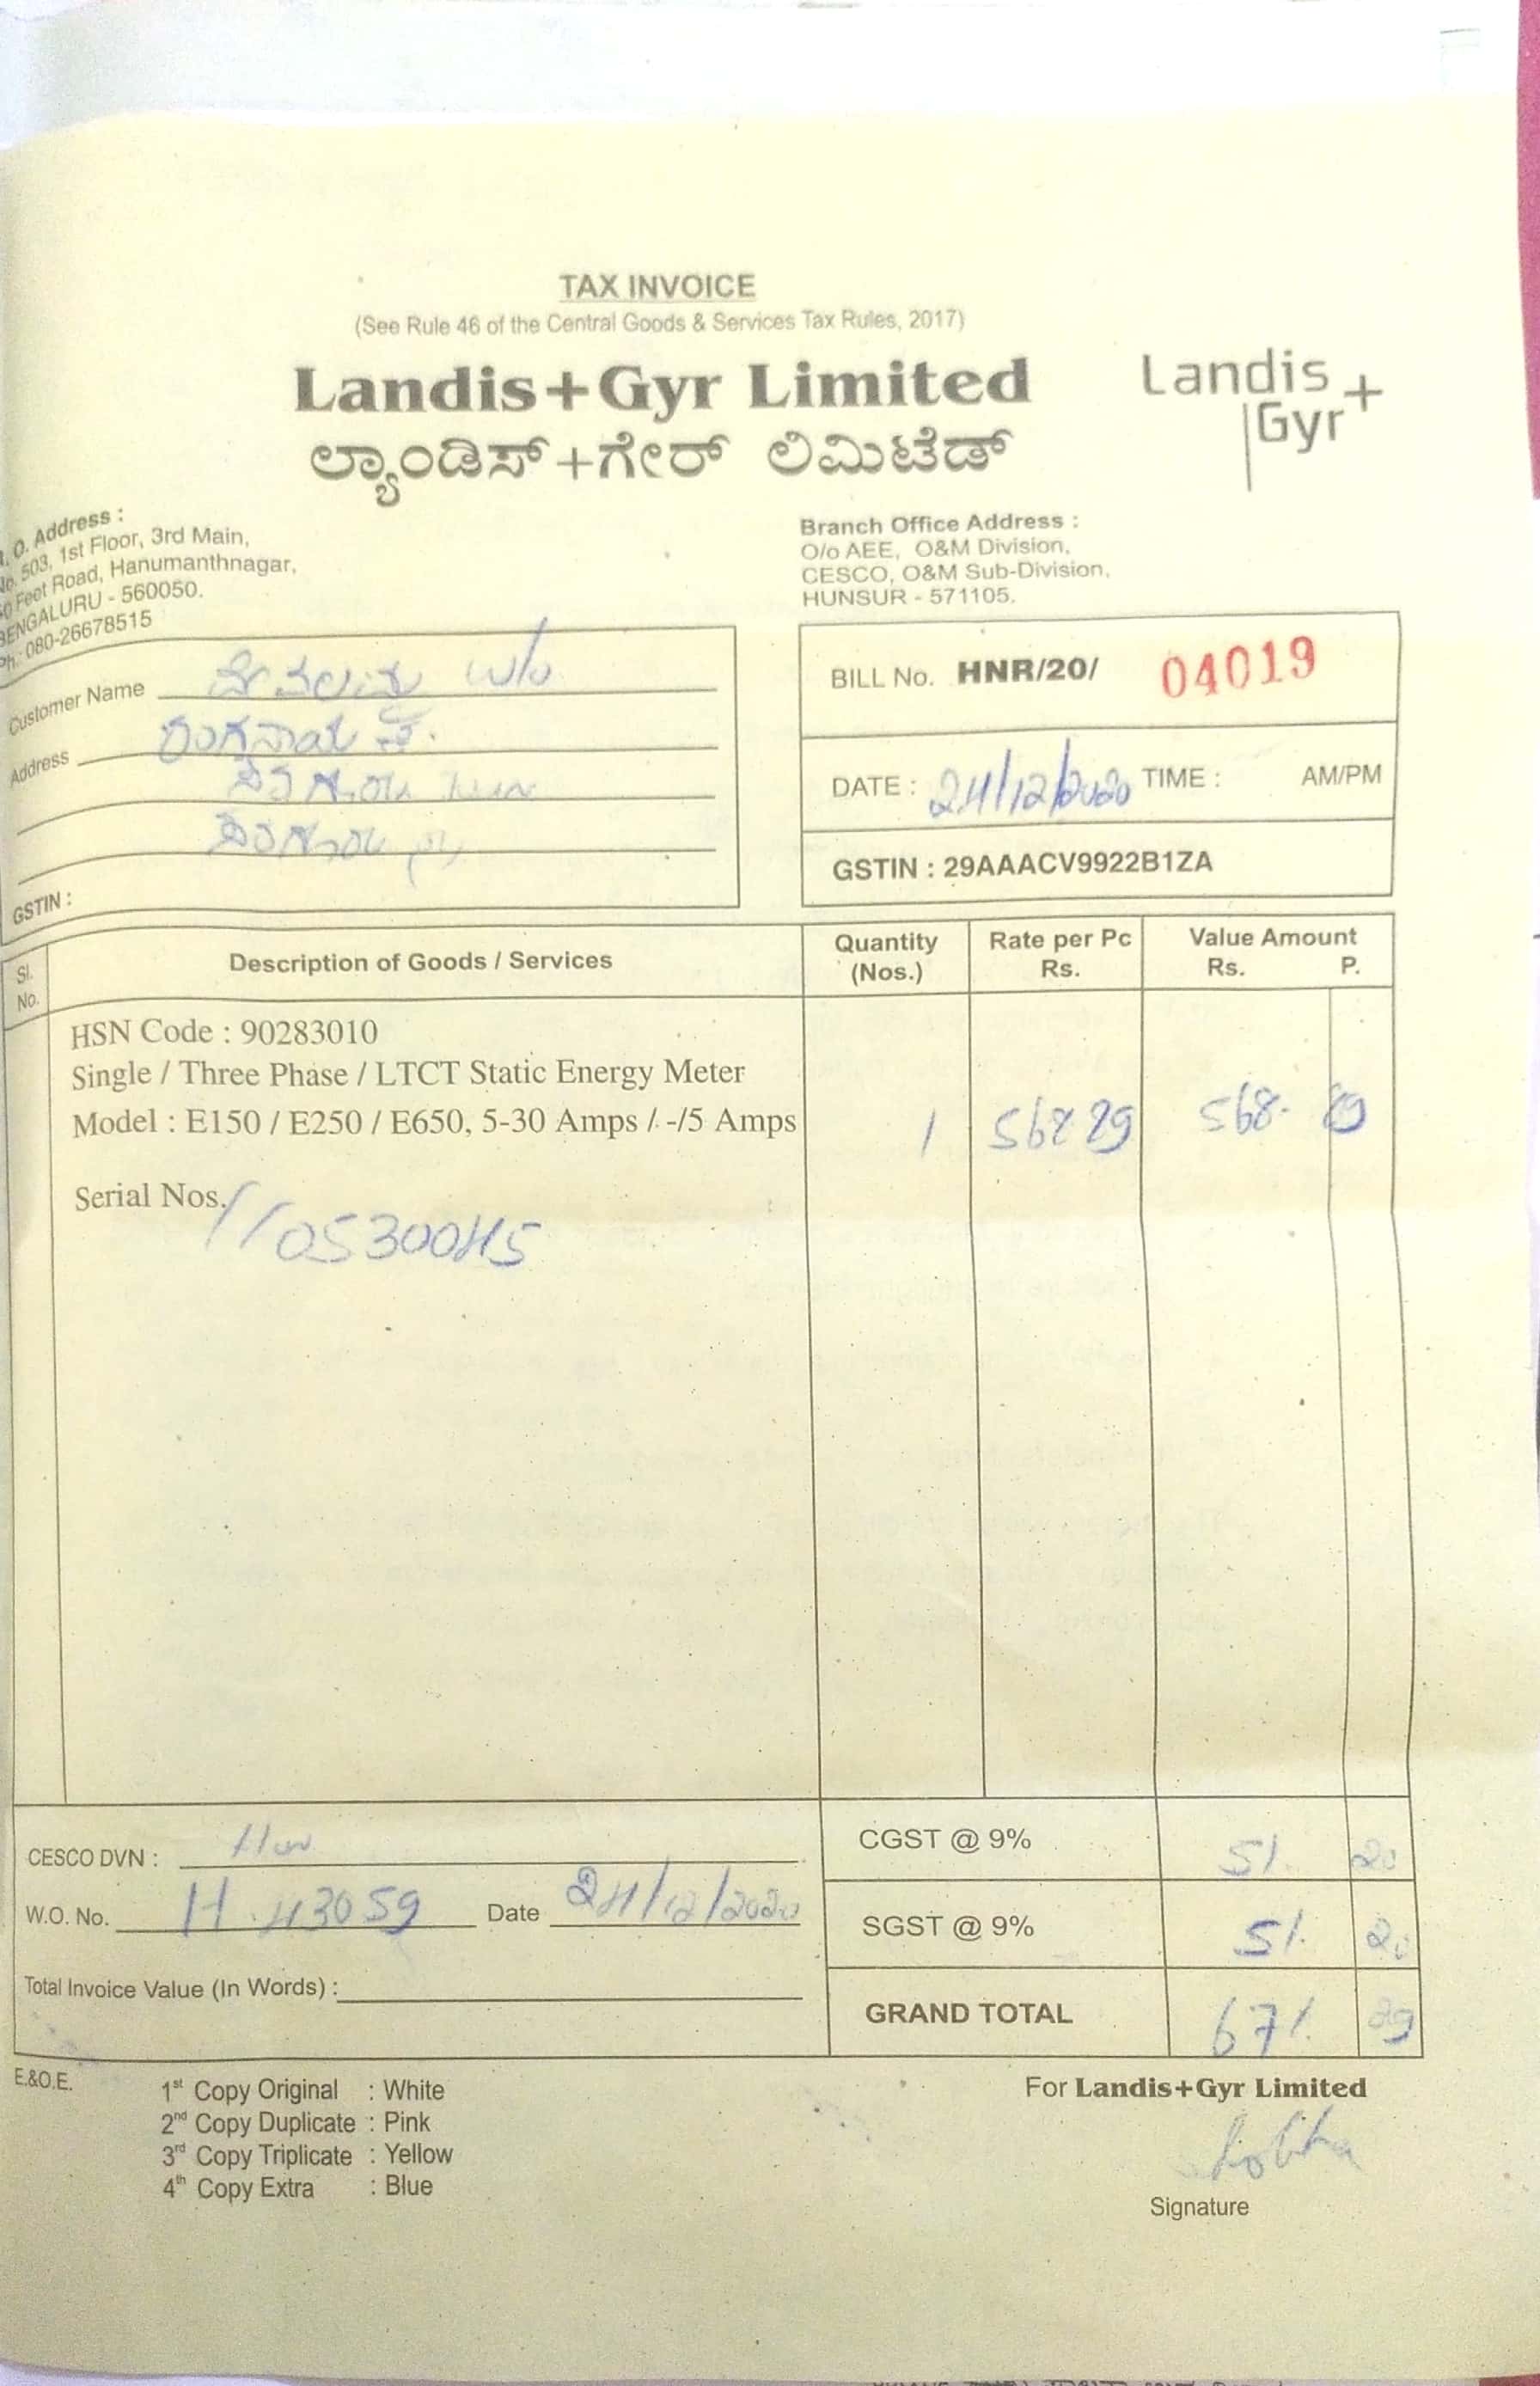 TAX INVOICE
(See Rule 46 of the Central Goods & Services Tax Rules, 2017)
Landis+Gyr Limited
ಲ್ಯಾಂಡಿಸ್+ಗೇರ್ ಲಿಮಿಟೆಡ್
Landis+
Gyr
O. Address :
No. 503, 1st Floor, 3rd Main,
Feet Road, Hanumanthnagar,
BENGALURU - 560050.
Ph.: 080-26678515
Branch Office Address :
O/o AEE, O&M Division,
CESCO, O&M Sub-Division,
HUNSUR - 571105.
Customer Name W/o
Address
GSTIN :
BILL No. HNR/20/ 04019
DATE : 24/12/2020 TIME : AM/PM
GSTIN : 29AAACV9922B1ZA
Sl. No. Description of Goods / Services Quantity (Nos.) Rate per Pc Rs. Value Amount Rs. P.
HSN Code : 90283010
Single / Three Phase / LTCT Static Energy Meter
Model : E150 / E250 / E650, 5-30 Amps / -/5 Amps 1 568 89 568. 89
Serial Nos. 110530045
CESCO DVN :
CGST @ 9% 51. 20
W.O. No. H.43059 Date 24/12/2020
SGST @ 9% 51. 20
Total Invoice Value (In Words) :
GRAND TOTAL 671.
E.&O.E.
1st Copy Original : White
2nd Copy Duplicate : Pink
3rd Copy Triplicate : Yellow
4th Copy Extra : Blue
For Landis+Gyr Limited
Signature